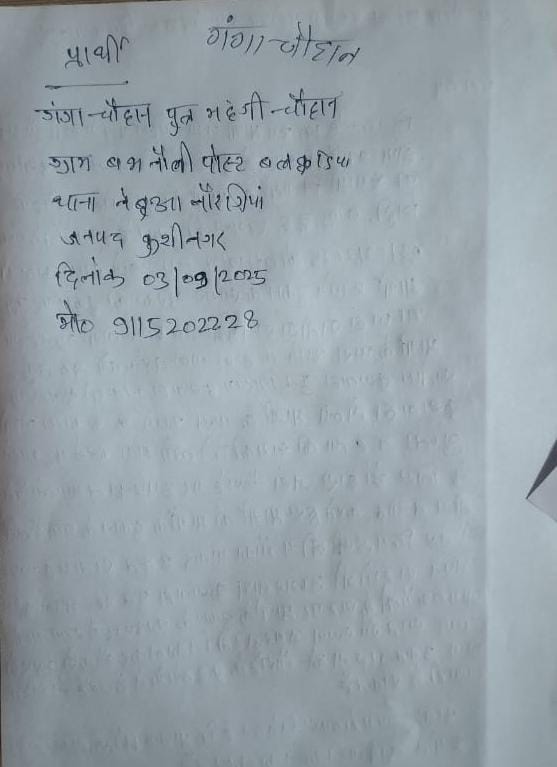 प्रार्थी गंगा चौहान
गंगा चौहान पुत्र महंगी चौहान
ग्राम बभनौली पोस्ट बलकुडिया
थाना नेबुआ नौरंगिया
जनपद कुशीनगर
दिनांक 03/09/2025
मो० 9115202228